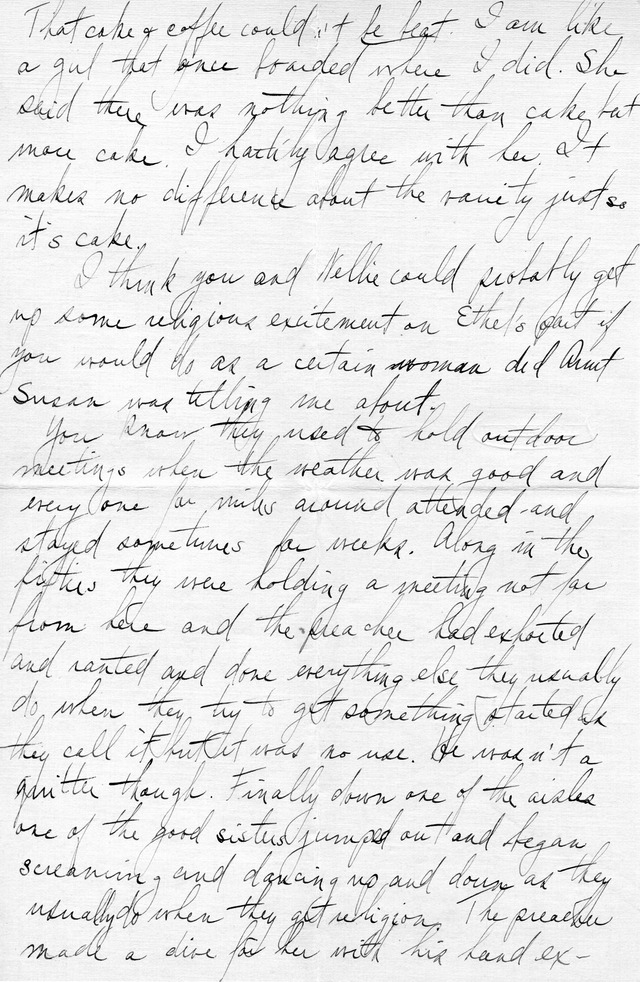 That cake & coffee couldn't be beat. I am like
a girl that once boarded where I did. She
said there was nothing better than cake but
more cake. I hartily agree with her. It
makes no difference about the variety just so
it's cake.
I think you and Nellie could probably get
up some religious excitement on Ethel's part if
you would do as a certain woman did Aunt
Susan was telling me about.
You know they used to hold outdoor
meetings when the weather was good and
every one for miles around attended and
stayed sometimes for weeks. Along in the
fifties they were holding a meeting not far
from here and the preacher had exhorted
and ranted and done everything else they usually
do when they try to get something started as
they call it but it was no use. He wasn't a
quitter though. Finally down one of the aisles
one of the good sisters jumped out and began
screaming and dancing up and down as they
usually do when they get religion. The preacher
made a dive for her with his hand ex-